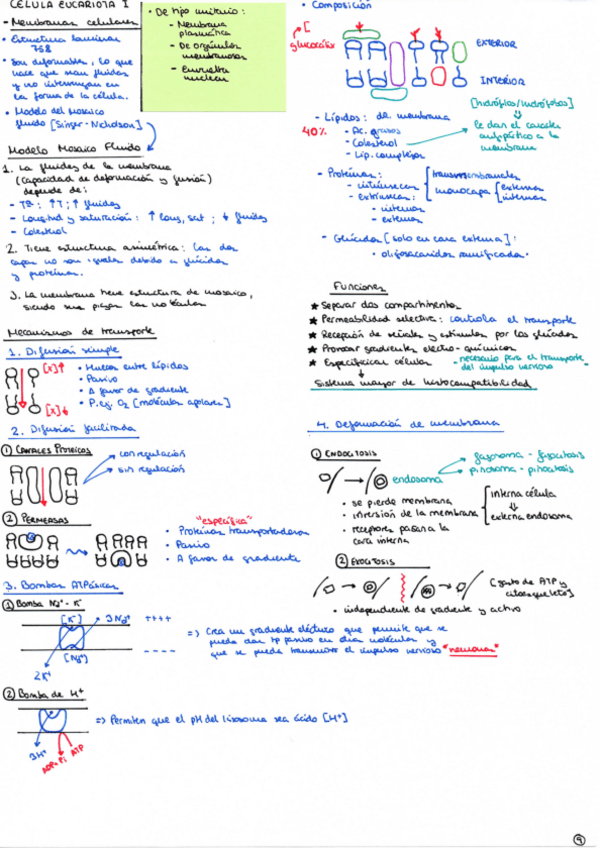 CÉLULA EUCARIOTA I
- Membranas celulares
• Estructura laminar
75Å
• Son deformables, lo que
hace que sean fluidas
y no intervengan en
la forma de la célula.
• Modelo del mosaico
fluido [Singer-Nicholson]
• De tipo unitario:
- Membrana
plasmática
- De orgánulos
membranosos
- Envuelta
nuclear
Modelo Mosaico Fluido
1. La fluidez de la membrana
(capacidad de deformación y fusión)
depende de:
- Tª: ↑T; ↑ fluidez
- Longitud y saturación: ↑ long, sat; ↓ fluidez
- Colesterol
2. Tiene estructura asimétrica: las dos
capas no son iguales debido a glúcidos
y proteínas.
3. La membrana tiene estructura de mosaico,
siendo sus piezas las moléculas
Mecanismos de transporte
1. Difusión simple
[x]↑
[x]↓
• Huecos entre lípidos
• Pasivo
• A favor de gradiente
• P.ej. O2 [moléculas apolares]
2. Difusión facilitada
① CANALES PROTEICOS
con regulación
sin regulación
② PERMEASAS
"específica"
• Proteínas transportadoras
• Pasivo
• A favor de gradiente
3. Bombas ATPásicas
① Bomba Na+ - K+
[K+]
3Na+
++++
[Na+]
----
2K+
=> Crea un gradiente eléctrico que permite que se
pueda dar tp pasivo en otras moléculas y
que se pueda transmitir el impulso nervioso "neurona"
② Bomba de H+
3H+
ADP+Pi
ATP
=> Permiten que el pH del lisosoma sea ácido [H+]
• Composición
glucocálix
EXTERIOR
INTERIOR
[hidrófilos/hidrófobos]
le dan el carácter
anfipático a la
membrana
- Lípidos: de membrana
40%
- Ác. grasos
- Colesterol
- Lip. complejos
- Proteínas:
- intrínsecas
transmembranales
monocapa
externas
internas
- extrínsecas:
- internas
- externas
- Glúcidos [solo en cara externa]:
• oligosacáridos ramificados
Funciones
★ Separar dos compartimentos
★ Permeabilidad selectiva: controla el transporte
★ Recepción de señales y estímulos por los glúcidos
★ Provocar gradientes electro-químicos
★ Especificidad celular
- necesario para el transporte
del impulso nervioso
Sistema mayor de histocompatibilidad
4. Deformación de membrana
① ENDOCITOSIS
endosoma
fagosoma - fagocitosis
pinosoma - pinocitosis
• se pierde membrana
• inversión de la membrana
interna célula
⇓
externa endosoma
• receptores pasan a la
cara interna
② EXOCITOSIS
[gasto de ATP y
citoesqueleto]
• independiente de gradiente y activo
9